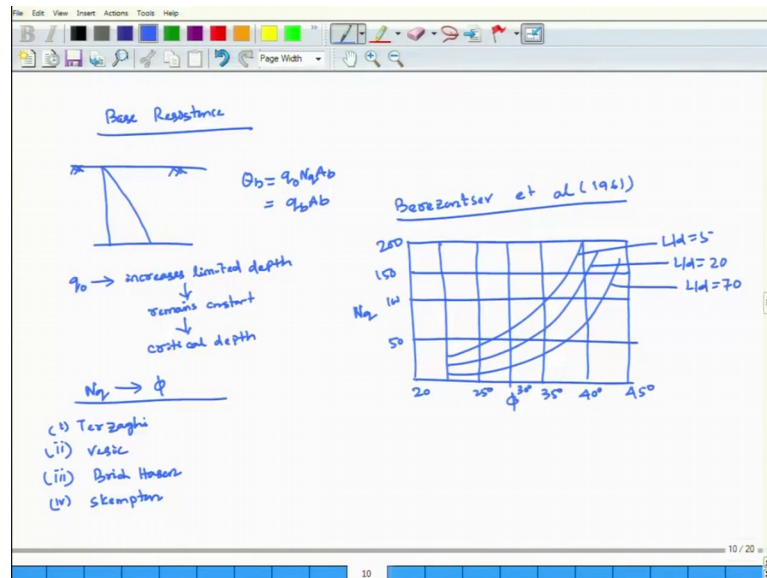 File Edit View Insert Actions Tools Help
B I
Page Width
Base Resistance
Qb = q0NqAb
= qbAb
q0 → increases limited depth
↓
remains constant
↓
critical depth
Nq → ϕ
(i) Terzaghi
(ii) Vesic
(iii) Brich Hasen
(iv) Skempton
Berezantsev et al (1961)
200
150
100
50
Nq
20 25° 30° 35° 40° 45°
ϕ
L/d=5
L/d=20
L/d=70
10 / 20
10